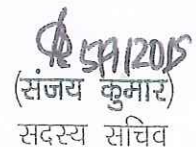 5/9/2015
(संजय कुमार)
सदस्य सचिव